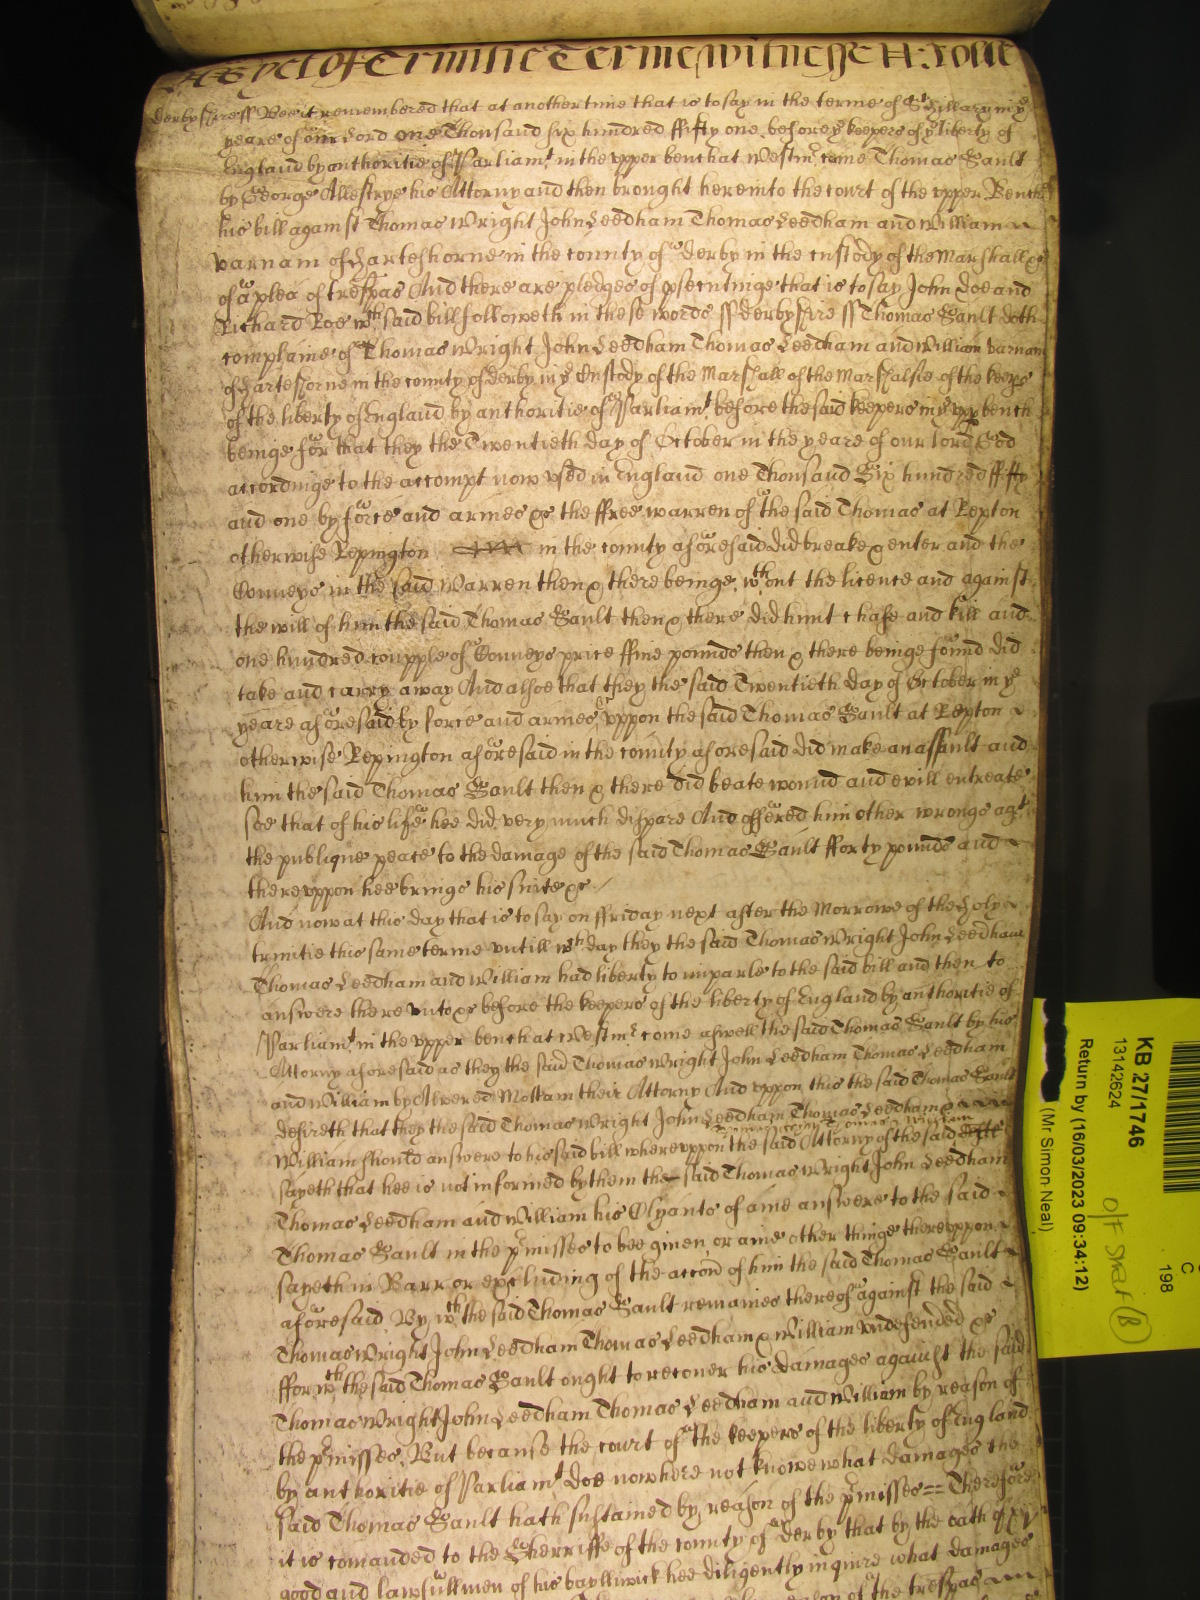 As yet of Trinitie Terme witnesse H: Rolle
Derbyshire ss Bee it remembered that at another time that is to say in the terme of St Hillary in ye
yeare of our Lord one Thousand six hundred ffifty one before ye keepers of ye liberty of
England by authoritie of Parliamt in the vpper bench at Westmr came Thomas Gault
by George Allestrye his Attorny and then brought here into the court of the vpper Bench
his bill against Thomas Wright John Leedham Thomas Leedham and William
Varnam of Harteshorne in the county of Derby in the custody of the Marshall &c
of a plea of trespas And there are pledges of psecutinge that is to say John Doe and
Richard Roe wch said bill followeth in these words ss Derbyshire ss Thomas Gault doth
complaine of Thomas Wright John Leedham Thomas Leedham and William Varnam
of Harteshorne in the county of Derby in ye Custody of the Marshall of the Marshalsie of the keeps
of the liberty of England by authoritie of Parliamt before the said keepers in ye vpp bench
beinge for that they the Twentieth day of October in the yeare of our lord God
accordinge to the accompt now vsed in England one Thousand Six hundred ffifty
and one by force and armes &c the ffree warren of the said Thomas at Repton
otherwise Repington in the county aforesaid did breake & enter and the
Conneys in the said Warren then & there beinge wthout the licence and against
the will of him the said Thomas Gault then & there did hunt chase and kill and
one hundred coupple of Conneys price ffiue pounds then & there beinge found did
take and carry away And alsoe that they the said Twentieth day of October in ye
yeare aforesaid by force and armes &c vppon the said Thomas Gault at Repton
otherwise Repington aforesaid in the county aforesaid did make an assault and
him the said Thomas Gault then & there did beate wound and evill entreate
soe that of his life hee did very much dispare And offered him other wrongs agt
the publique peace to the damage of the said Thomas Gault fforty pounds and
therevppon hee brings his suite &c
And now at this day that is to say on ffriday next after the Morrowe of the Holy
trinitie this same terme vntill wch day they the said Thomas Wright John Leedham
Thomas Leedham and William had liberty to imparle to the said bill and then to
answere therevnto &c before the keepers of the liberty of England by authoritie of
Parliamt in the vpper bench at Westmr come aswell the said Thomas Gault by his
Attorny aforesaid as they the said Thomas Wright John Leedham Thomas Leedham
and William by Alvered Mottam their Attorny And vppon this the said Thomas Gault
desireth that they the said Thomas Wright John Leedham Thomas Leedham &
William should answere to his said bill wherevppon the said Attorny of the said
sayeth that hee is not informed by them the said Thomas Wright John Leedham
Thomas Leedham and William his Clyants of anie answere to the said
Thomas Gault in the pmisses to bee giuen or anie other thinge therevppon
sayeth in Barr or excluding of the accon of him the said Thomas Gault
aforesaid By wch the said Thomas Gault remaines thereof against the said
Thomas Wright John Leedham Thomas Leedham & William vndefended &c
ffor wch the said Thomas Gault ought to recouer his damages against the said
Thomas Wright John Leedham Thomas Leedham and William by reason of
the pmisses. But because the court of the keepers of the liberty of England
by authoritie of Parliamt doe now here not knowe what damages the
said Thomas Gault hath sustained by reason of the pmisses == Therefore
it is comanded to the Sherriffe of the county of Derby that by the oath of xij
good and lawfull men of his bayliiwick hee diligently inquire what damages
of the trespas
KB 27/1746
13142624
Return by (16/03/2023 09:34:12)
(Mr Simon Neal)
C
198
O/F Shelf (B)